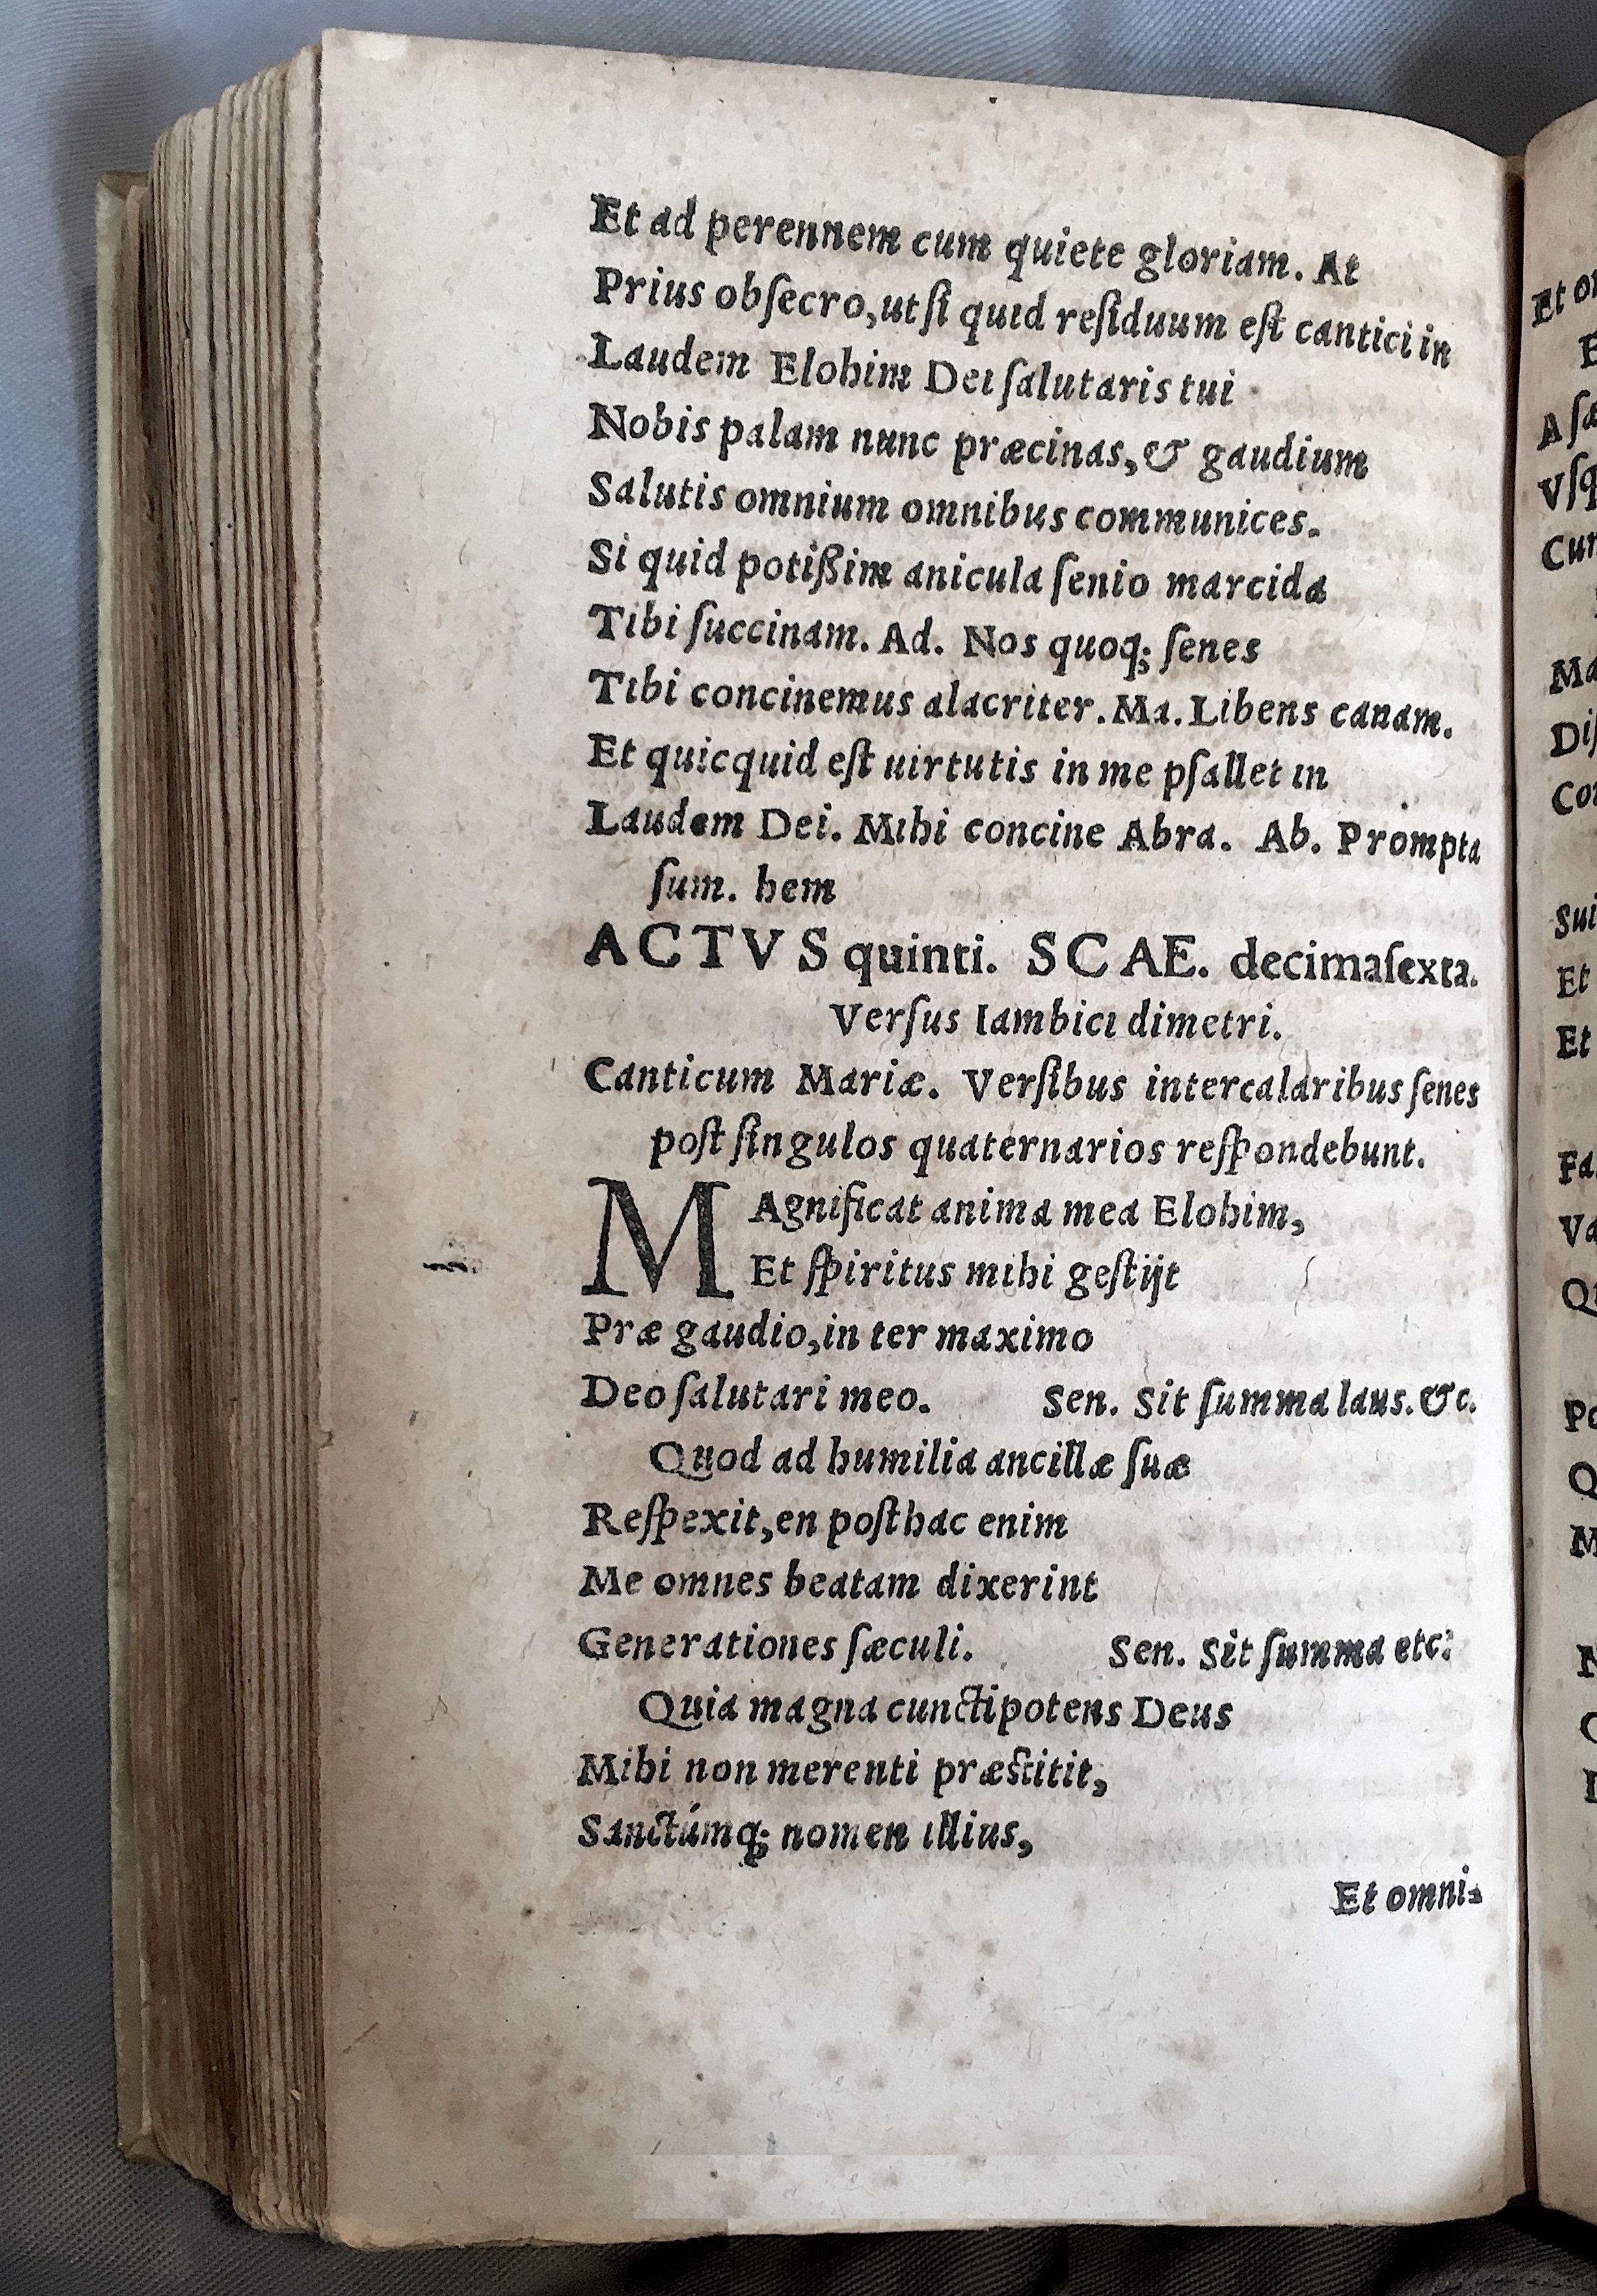 Et ad perennem cum quiete gloriam. At
Prius obſecro,ut ſi quid reſiduum eſt cantici in
Laudem Elohim Dei ſalutaris tui
Nobis palam nunc præcinas,& gaudium
Salutis omnium omnibus communices.
Si quid potißim anicula ſenio marcida
Tibi ſuccinam. Ad. Nos quoq; ſenes
Tibi concinemus alacriter. Ma. Libens canam.
Et quicquid eſt uirtutis in me pſallet in
Laudem Dei. Mihi concine Abra. Ab. Prompta
ſum. hem
ACTVS quinti. SCAE. decimaſexta.
Verſus Iambici dimetri.
Canticum Mariæ. Verſibus intercalaribus ſenes
poſt ſingulos quaternarios reſpondebunt.
MAgnificat anima mea Elohim,
Et ſpiritus mihi geſtijt
Præ gaudio,in ter maximo
Deo ſalutari meo. Sen. Sit ſumma laus.&c.
Quod ad humilia ancillæ ſuæ
Reſpexit,en poſthac enim
Me omnes beatam dixerint
Generationes ſæculi. Sen. Sit ſumma etc:
Quia magna cunctipotens Deus
Mihi non merenti præſtitit,
Sanctúmq; nomen illius,
Et omni-
Et
A
Vſq
Cur
Ma
Diſ
Sui
Et
Et
Fa
Va
Q
M